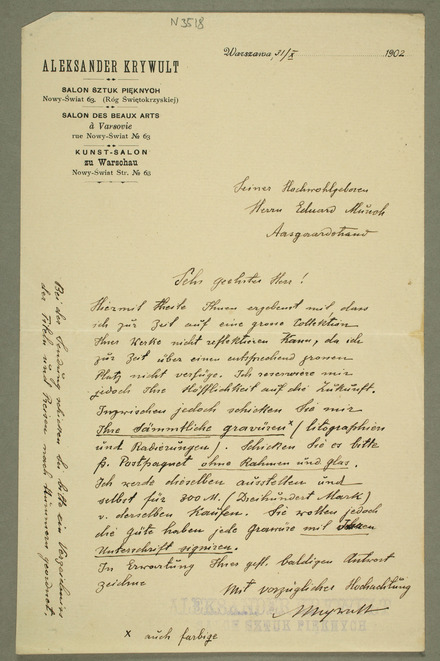 N 3518
Warszawa, 31/X 1902
ALEKSANDER KRYWULT
SALON SZTUK PIĘKNYCH
Nowy-Świat 63. (Róg Świętokrzyskiej)
SALON DES BEAUX ARTS
à Varsovie
rue Nowy-Świat № 63
KUNST-SALON
zu Warschau
Nowy-Świat Str. № 63
Seiner Hochwohlgeboren
Herrn Eduard Münch
Aasgaardstrand
Sehr geehrter Herr!
Hiermit theile Ihnen ergebenst mit, dass
ich zür Zeit auf eine grosse Collektion
Ihrer Werke nicht reflektiren kann, da ich
zür Zeit über einen entsprechend grossen
Platz nicht verfüge. Ich reserwiere mir
jedoch Ihre Höfflichkeit auf die Zükunft.
Inzwischen jedoch schicken Sie mir
Ihre Sämmtliche gravüren x (litographien
und Radierungen). Schicken Sie es bitte
p. Postpaquet ohne Rahmen und glas.
Ich werde dieselben austellen und
selbst für 300 M. (Dreihundert Mark)
v. derselben Kaufen. Sie wollen jedoch
die güte haben jede Grawüre mit Ihren
Unterschrift signiren.
In Erwartung Ihrer gefl. baldigen Antwort
zeichne
Mit vorzüglicher Hochachtung
Krywult
ALEKSANDER KRYWULT
SALON SZTUK PIĘKNYCH
x auch farbige
Bei der Sendung schicken Sie bitte ein Verzeichniss
der Titeln und Preisen nach Nümmern geordnet